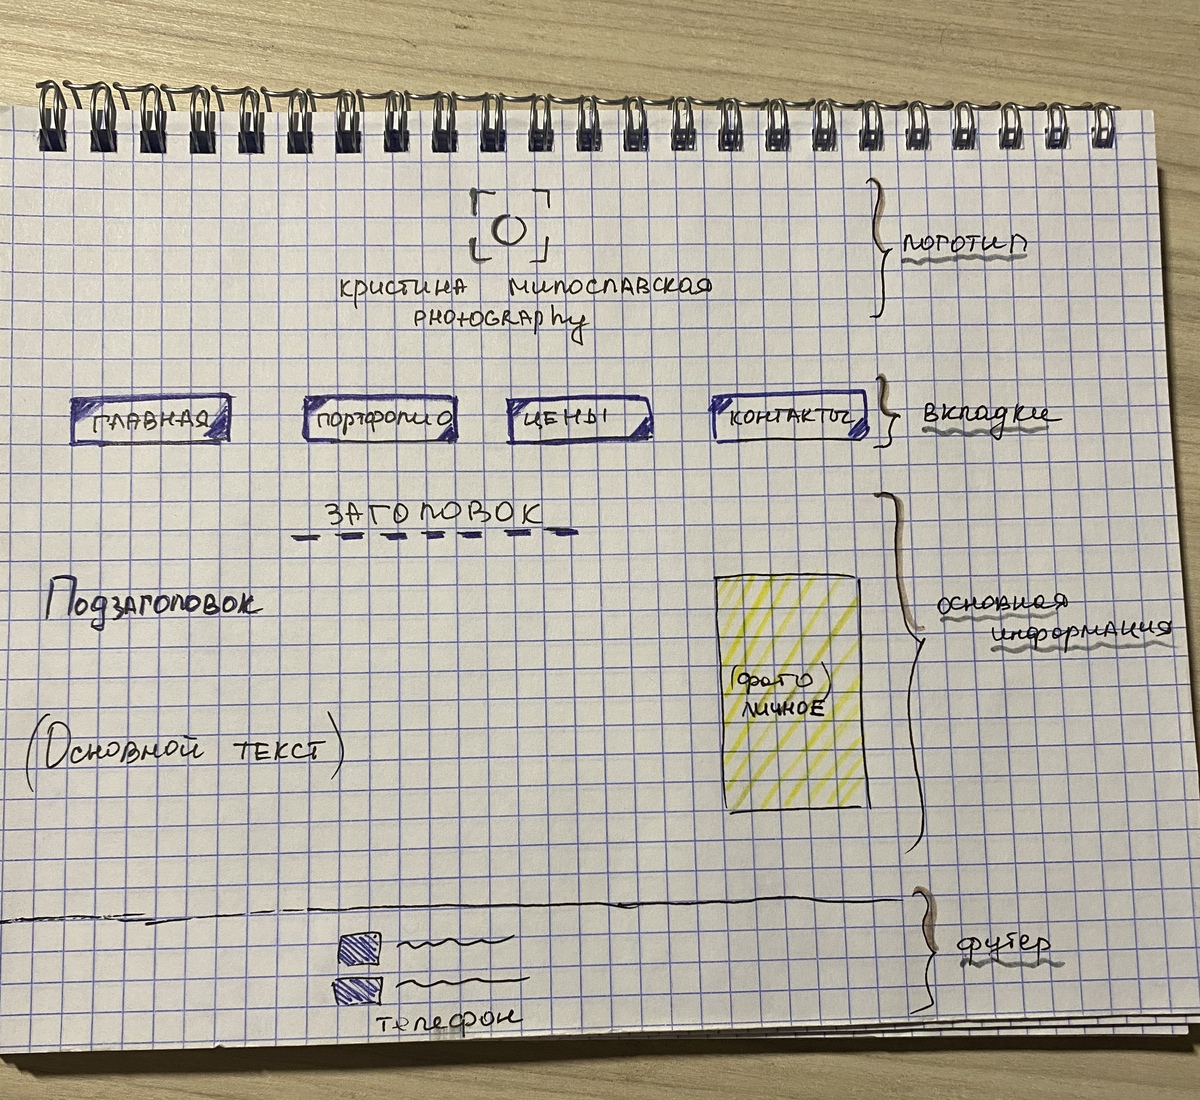 КРИСТИНА МИЛОСЛАВСКАЯ
PHOTOGRAPHY
логотип
ГЛАВНАЯ
ПОРТФОЛИО
ЦЕНЫ
КОНТАКТЫ
вкладки
ЗАГОЛОВОК
Подзаголовок
(фото)
личное
основная
информация
(Основной текст)
футер
телефон